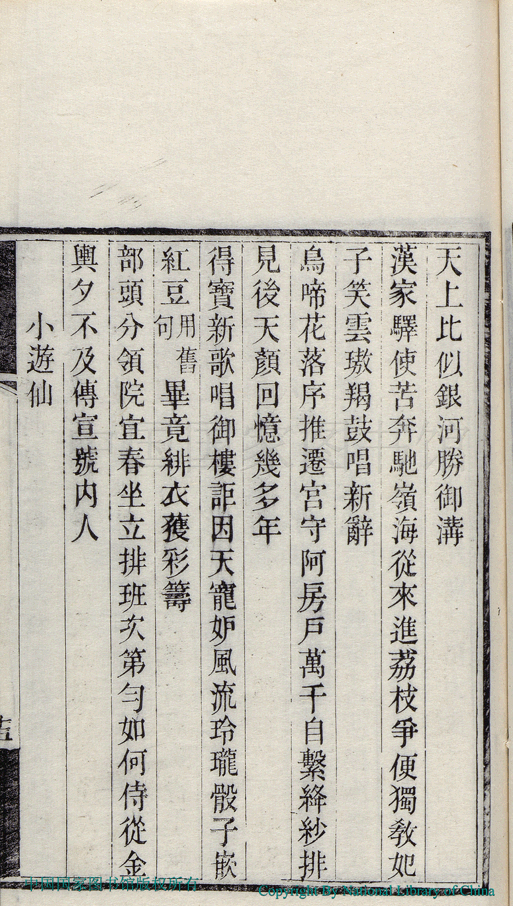 天上比似銀河勝御溝
漢家驛使苦奔馳嶺海從來進荔枝爭便獨敎妃
子笑雲璈羯鼓唱新辭
鳥啼花落序推遷宮守阿房戶萬千自繫絳紗排
見後天顏回憶幾多年
得寶新歌唱御樓詎因天寵妒風流玲瓏骰子嵌
紅豆用舊句畢竟緋衣獲彩籌
部頭分領院宜春坐立排班次第勻如何侍從金
輿夕不及傳宣號內人
小遊仙
中国国家图书馆版权所有
Copyright By National Library of China